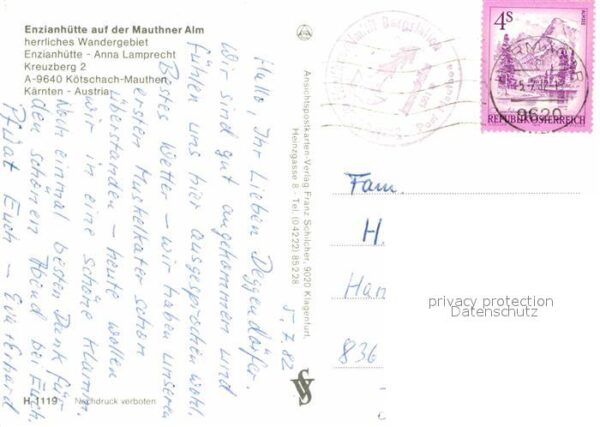 Enzianhütte auf der Mauthner Alm
herrliches Wandergebiet
Enzianhütte - Anna Lamprecht
Kreuzberg 2
A-9640 Kötschach-Mauthen
Kärnten - Austria
5.7.82
Hallo, Ihr Lieben Deggendörfer.
Wir sind gut angekommen und
fühlen uns hier ausgesprochen wohl.
Bestes Wetter – wir haben unseren
ersten Muskelkater schon
überstanden – heute wollen
wir in eine schöne Klamm.
Noch einmal besten Dank für
den schönen Abend bei Euch.
Pfüat Euch – Eva + Erhard
H-1119 Nachdruck verboten
Ansichtspostkarten-Verlag Franz Schilcher, 9020 Klagenfurt,
Heinzgasse 8 - Tel. (0 42 22) 85 2 28
4S
REPUBLIK ÖSTERREICH
9620
Fam.
H.
Han
836
privacy protection
Datenschutz